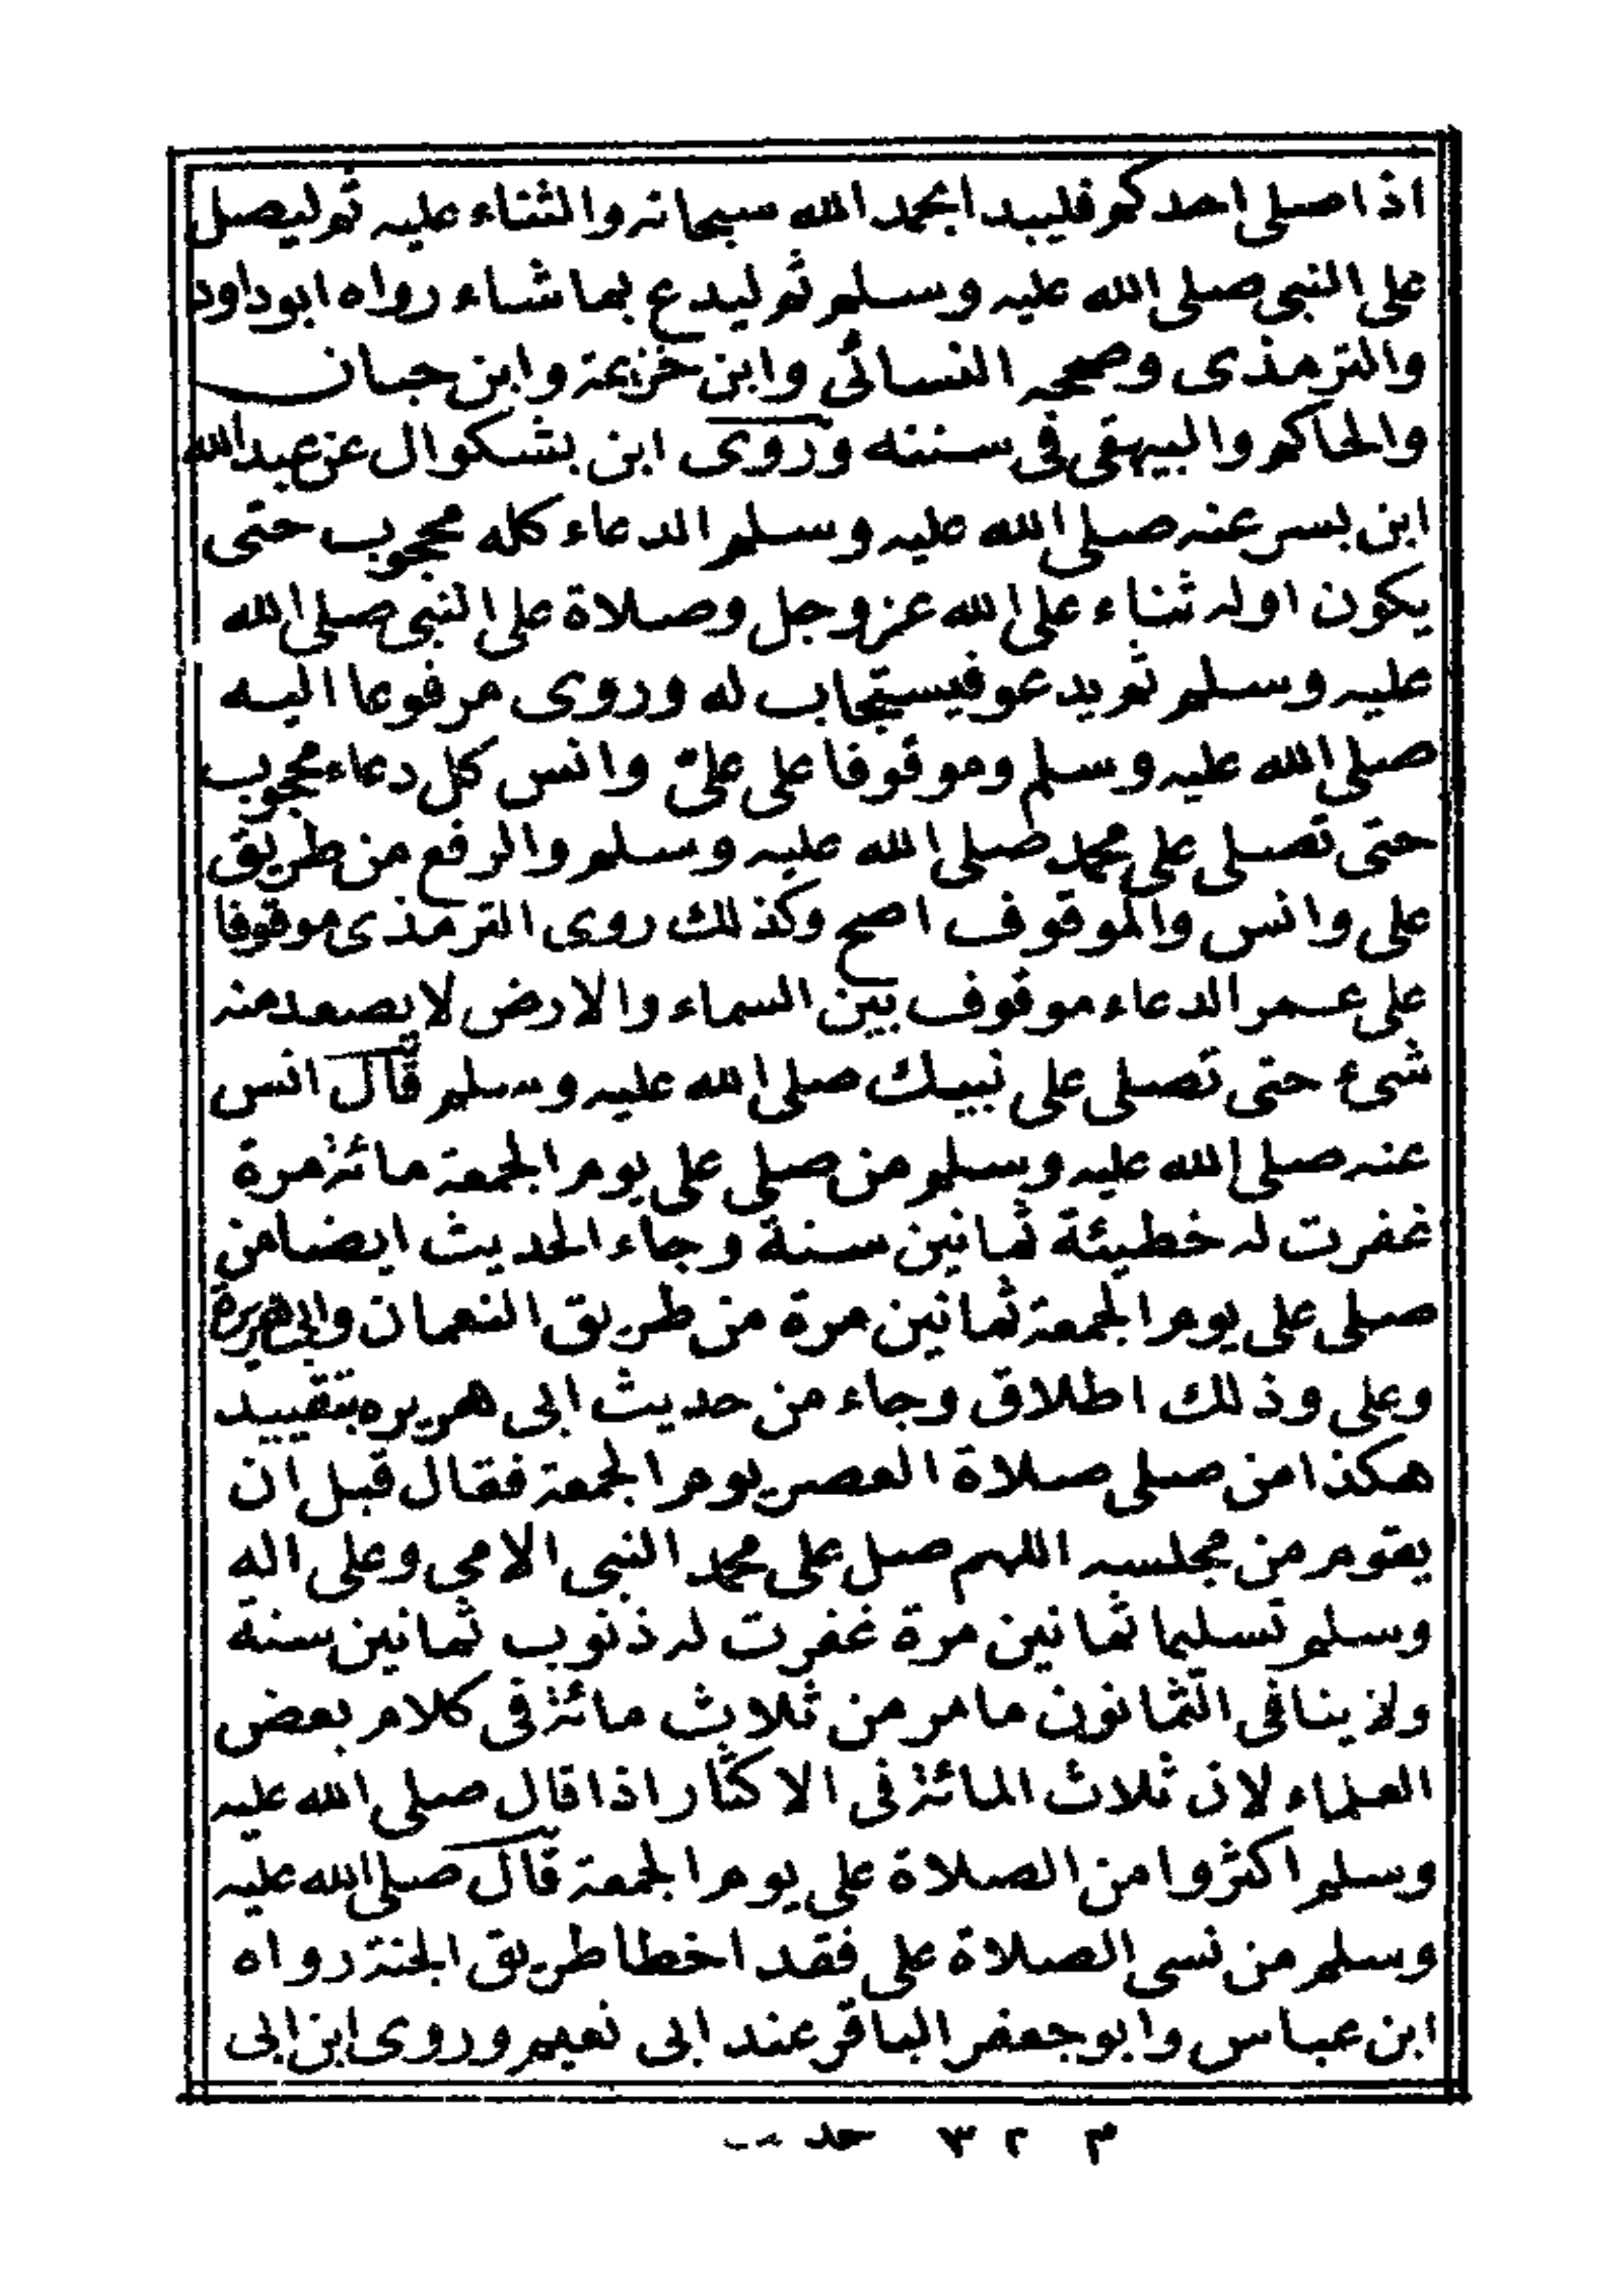 اذا صلى احدكم فليبدا بحمد الله سبحانه والثناء عليه ثم ليصل
على النبي صلى الله عليه وسلم ثم ليدع بما شاء رواه ابوداود
والترمذى وصححه النسائى وابن خزيمة وابن حبان
والحاكم والبيهقى فى سننه وروى ابن بشكوال عن عبد الله
ابن بسر عنه صلى الله عليه وسلم الدعاء كله محجوب حتى
يكون اوله ثناء على الله عز وجل وصلاة على النبى صلى الله
عليه وسلم ثم يدعو فيستجاب له وروى مرفوعا اليه
صلى الله عليه وسلم وموقوفا على على وانس كل دعاء محجوب
حتى تصلى على محمد صلى الله عليه وسلم والرفع من طريق
على وانس والموقوف اصح وكذلك روى الترمذى موقوفا
على عمر الدعاء موقوف بين السماء والارض لا يصعد منه
شىء حتى تصلى على نبيك صلى الله عليه وسلم قال انس
عنه صلى الله عليه وسلم من صلى على يوم الجمعة مائة مرة
غفرت له خطيئة ثمانين سنة وجاء الحديث ايضا من
صلى على يوم الجمعة ثمانين مرة من طريق النعمان وابى هريرة
وعلى وذلك اطلاق وجاء من حديث ابى هريره بتقييد
هكذا من صلى صلاة العصر يوم الجمعة فقال قبل ان
يقوم من مجلسه اللهم صل على محمد النبي الامي وعلى اله
وسلم تسليما ثمانين مرة غفرت له ذنوب ثمانين سنة
ولا ينافى الثمانون ما مر من ثلاث مائة فى كلام بعض
العلماء لان ثلاث المائة فى الاكثار اذا قال صلى الله عليه
وسلم اكثروا من الصلاة على يوم الجمعة قال صلى الله عليه
وسلم من نسى الصلاة على فقد اخطا طريق الجنة رواه
ابن عباس وابو جعفر الباقر عند ابى نعيم وروى ابن ابى
م ٢٣ حد